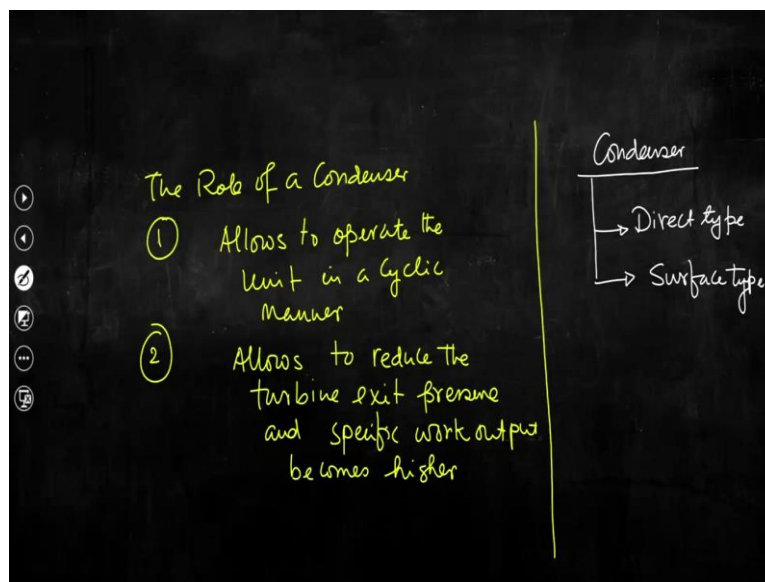 The Role of a Condenser
1 Allows to operate the
Unit in a Cyclic
Manner
2 Allows to reduce the
turbine exit pressure
and specific work output
becomes higher
Condenser
→ Direct type
→ Surface type